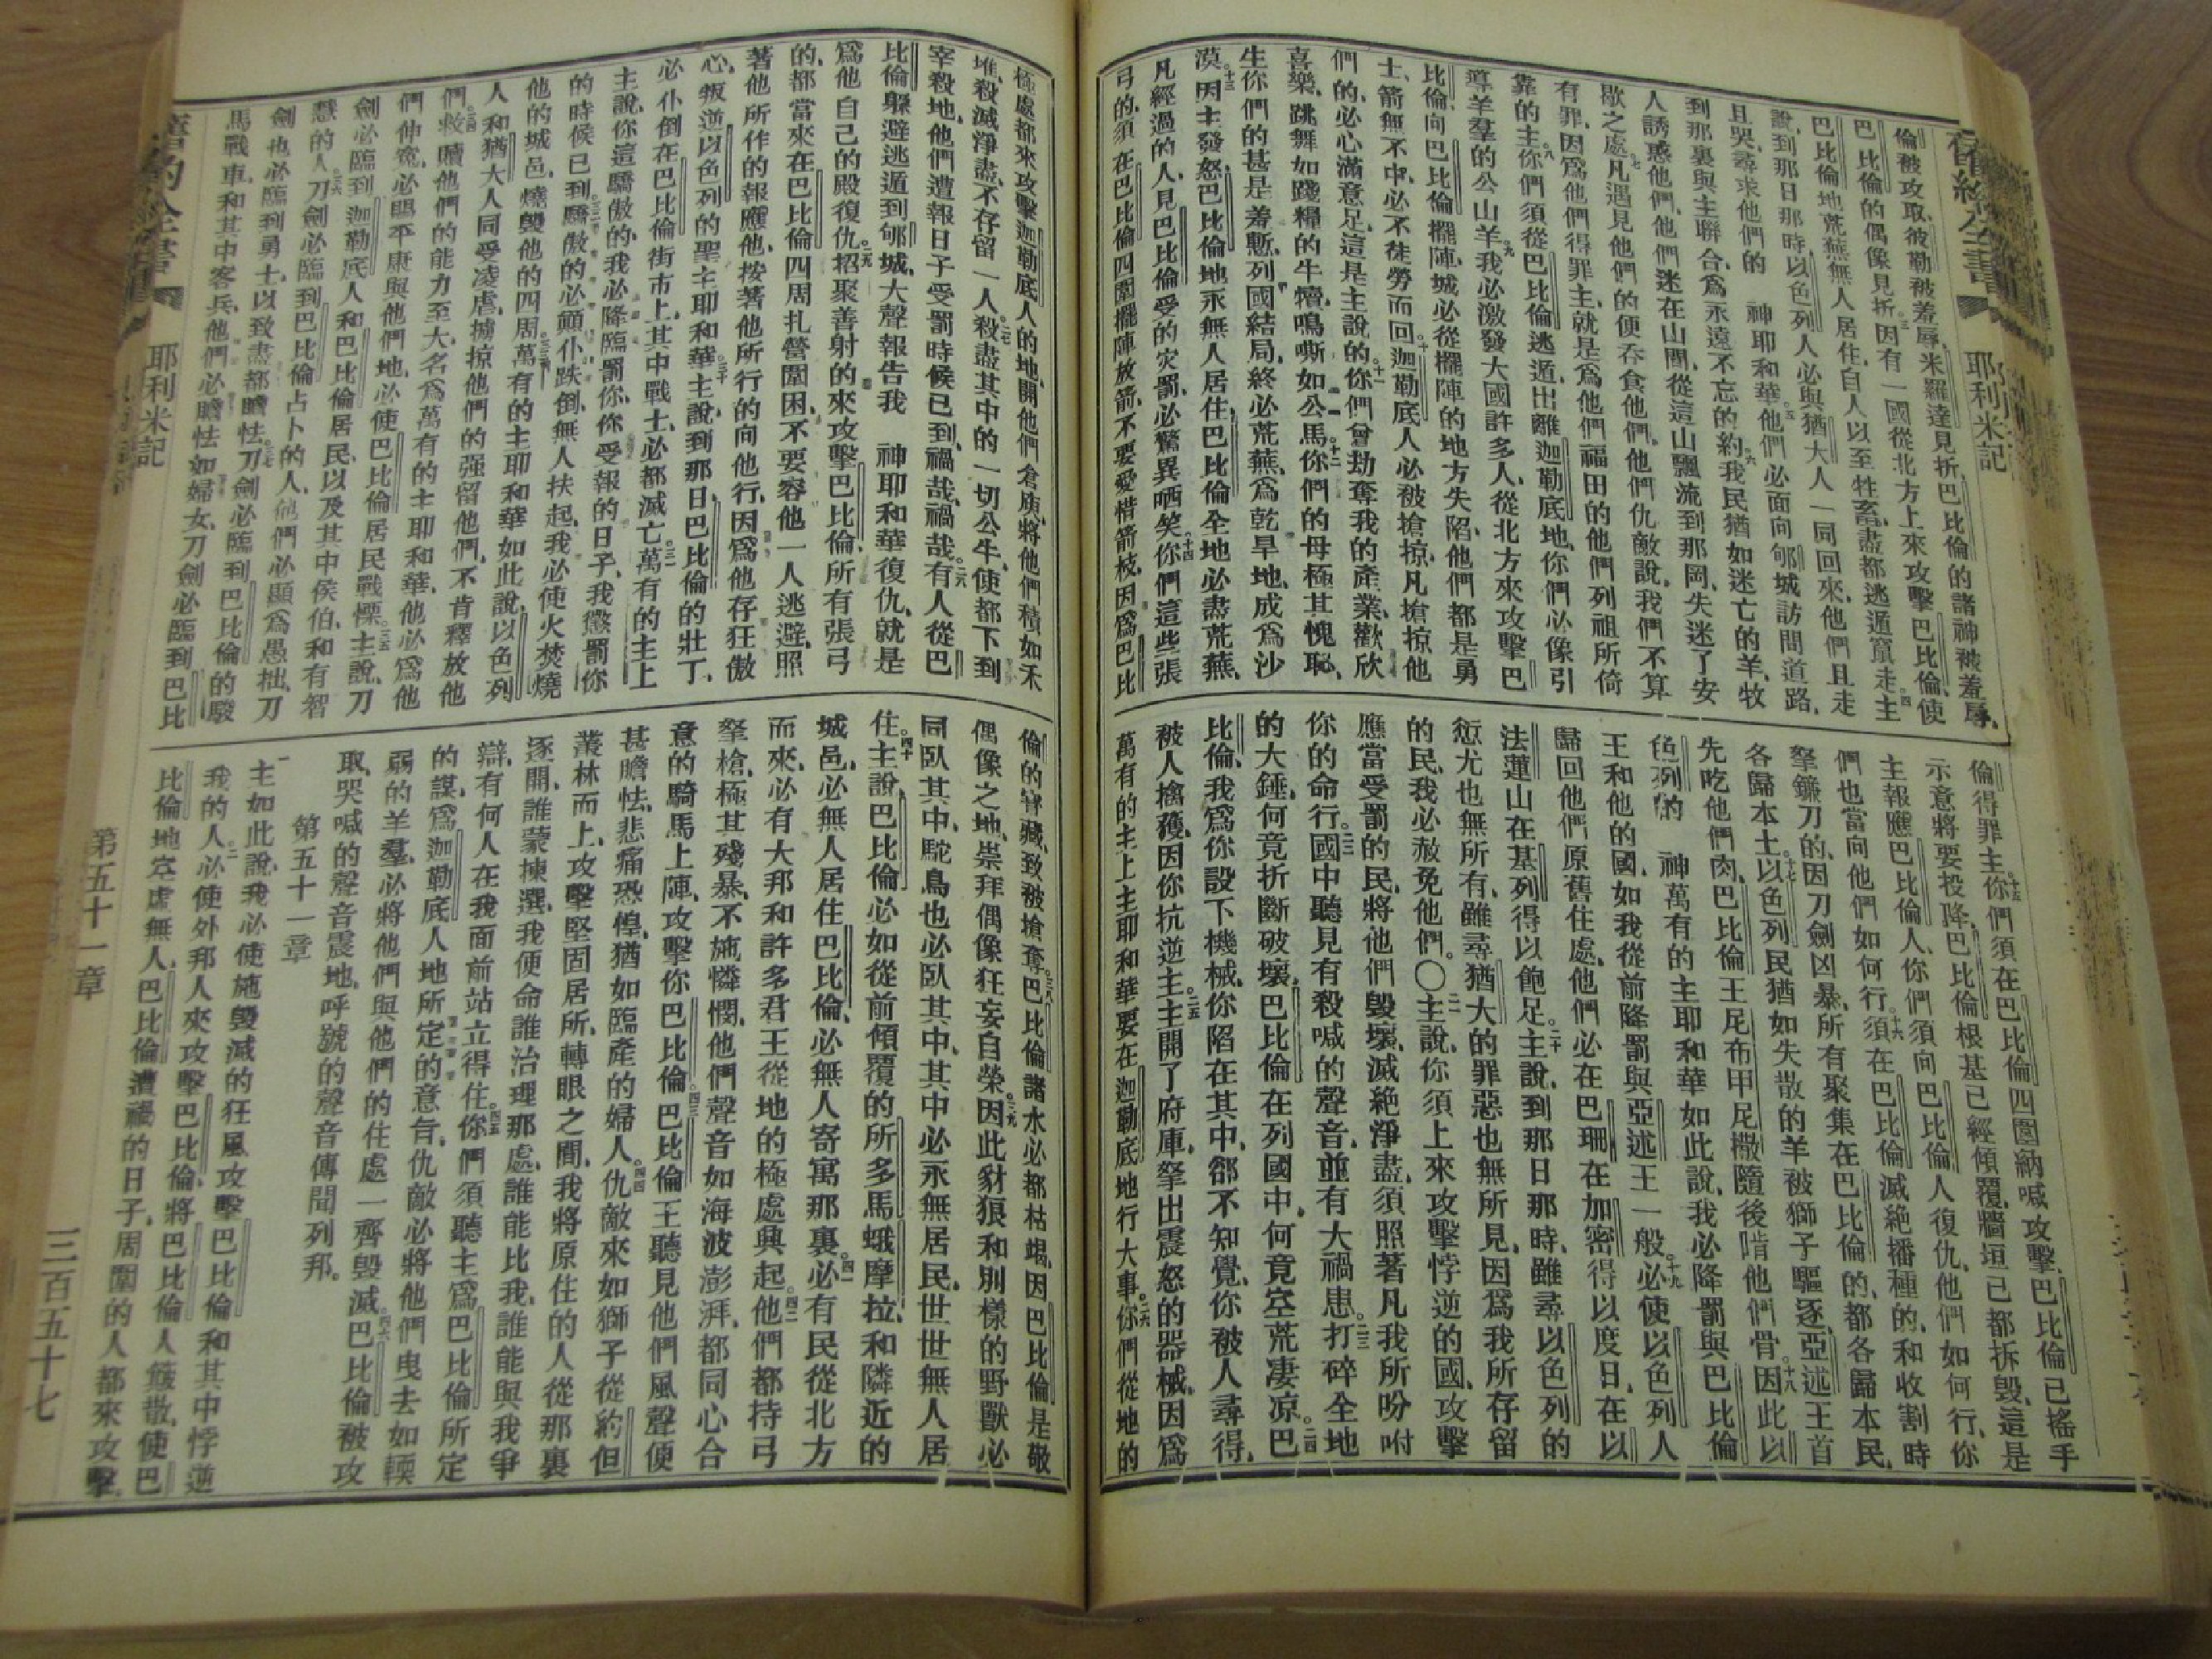 耶利米記
倫被攻取、彼勒被羞辱、米羅達見折、巴比倫的諸神被羞辱、
巴比倫的偶像見折。三因有一國從北方上來攻擊巴比倫、使
巴比倫地荒蕪無人居住、自人以至牲畜、盡都逃遁竄走。四主
說、到那日那時、以色列人必與猶大人一同回來、他們且走
且哭、尋求他們的 神耶和華。五他們必面向郇城訪問道路、
到那裏與主聯合、爲永遠不忘的約。六我民猶如迷亡的羊、牧
人誘惑他們、他們迷在山間、從這山飄流到那岡、失迷了安
歇之處。七凡遇見他們的便吞食他們、他們仇敵說、我們不算
有罪、因爲他們得罪主、就是爲他們福田的他們列祖所倚
靠的主。八你們須從巴比倫逃遁、出離迦勒底地、你們必像引
導羊羣的公山羊。九我必激發大國許多人、從北方來攻擊巴
比倫、向巴比倫擺陣、城必從擺陣的地方失陷、他們都是勇
士、箭無不中、必不徒勞而回。十迦勒底人必被搶掠、凡搶掠他
們的、必心滿意足、這是主說的。十一你們曾劫奪我的產業、歡欣
喜樂、跳舞如踐糧的牛犢、鳴嘶如公馬。十二你們的母極其愧恥、
生你們的甚是羞慙、列國結局、終必荒蕪、爲乾旱地、成爲沙
漠。十三因主發怒、巴比倫地永無人居住、巴比倫全地必盡荒蕪、
凡經過的人、見巴比倫受的灾罰、必驚異哂笑。十四你們這些張
弓的、須在巴比倫四圍擺陣放箭、不要愛惜箭枝、因爲巴比
倫得罪主。十五你們須在巴比倫四圍吶喊攻擊、巴比倫已搖手
示意將要投降、巴比倫根基已經傾覆、牆垣已都拆毀、這是
主報應巴比倫人、你們須向巴比倫人復仇、他們如何行、你
們也當向他們如何行。十六須在巴比倫滅絕播種的、和收割時
拏鐮刀的、因刀劍凶暴、所有聚集在巴比倫的、都各歸本民、
各歸本土。十七以色列民猶如失散的羊、被獅子驅逐、亞述王首
先吃他們肉、巴比倫王尼布甲尼撒隨後啃他們骨。十八因此以
色列的 神萬有的主耶和華如此說、我必降罰與巴比倫
王和他的國、如我從前降罰與亞述王一般。十九必使以色列人
歸回他們原舊住處、他們必在巴珊在加密得以度日、在以
法蓮山在基列得以飽足。二十主說、到那日那時、雖尋以色列的
愆尤也無所有、雖尋猶大的罪惡也無所見、因爲我所存留
的民、我必赦免他們。〇二一主說、你須上來攻擊悖逆的國、攻擊
應當受罰的民、將他們毀壞、滅絕淨盡、須照著凡我所吩咐
你的命行。二二國中聽見有殺喊的聲音、並有大禍患。二三打碎全地
的大錘、何竟折斷破壞、巴比倫在列國中、何竟空荒凄凉。二四巴
比倫、我爲你設下機械、你陷在其中、郤不知覺、你被人尋得、
被人擒獲、因你抗逆主。二五主開了府庫、拏出震怒的器械、因爲
萬有的主上主耶和華要在迦勒底地行大事。二六你們從地的
極處都來攻擊迦勒底人的地、開他們倉庾、將他們積如禾
堆、殺滅淨盡、不存留一人。二七殺盡其中的一切公牛、使都下到
宰殺地、他們遭報日子受罰時候已到、禍哉、禍哉。二八有人從巴
比倫躲避逃遁、到郇城大聲報告我 神耶和華復仇、就是
爲他自己的殿復仇。二九招聚善射的來攻擊巴比倫、所有張弓
的、都當來在巴比倫四周扎營圍困、不要容他一人逃避、照
著他所作的報應他、按著他所行的向他行、因爲他存狂傲
心、叛逆以色列的聖主耶和華。三十主說、到那日巴比倫的壯丁、
必仆倒在巴比倫街市上、其中戰士、必都滅亡。三一萬有的主上
主說、你這驕傲的、我必降臨罰你、你受報的日子、我懲罰你
的時候已到。三二驕傲的必顛仆跌倒、無人扶起、我必使火焚燒
他的城邑、燒毀他的四周。三三萬有的主耶和華如此說、以色列
人和猶大人同受凌虐、擄掠他們的强留他們、不肯釋放他
們。三四救贖他們的能力至大、名爲萬有的主耶和華、他必爲他
們伸寃、必賜平康與他們地、必使巴比倫居民戰慄。三五主說、刀
劍必臨到迦勒底人和巴比倫居民、以及其中侯伯、和有智
慧的人。三六刀劍必臨到巴比倫占卜的人、他們必顯爲愚拙、刀
劍也必臨到勇士、以致盡都膽怯。三七刀劍必臨到巴比倫的駿
馬戰車、和其中客兵、他們必膽怯如婦女、刀劍必臨到巴比
倫的寶藏、致被搶奪。三八巴比倫諸水必都枯竭、因巴比倫是敬
偶像之地、崇拜偶像狂妄自榮。三九因此豺狼和別樣的野獸必
同臥其中、駝鳥也必臥其中、其中必永無居民、世世無人居
住。四十主說、巴比倫必如從前傾覆的所多馬蛾摩拉、和隣近的
城邑、必無人居住、巴比倫、必無人寄寓那裏。四一必有民從北方
而來、必有大邦和許多君王從地的極處興起。四二他們都持弓
拏槍、極其殘暴、不施憐憫、他們聲音如海波澎湃、都同心合
意的騎馬上陣、攻擊你巴比倫。四三巴比倫王聽見他們風聲、便
甚膽怯、悲痛恐惶、猶如臨產的婦人。四四仇敵來如獅子從約但
叢林而上、攻擊堅固居所、轉眼之間、我將原住的人從那裏
逐開、誰蒙揀選、我便命誰治理那處、誰能比我、誰能與我爭
辯、有何人在我面前站立得住。四五你們須聽主爲巴比倫所定
的謀、爲迦勒底人地所定的意旨、仇敵必將他們曳去如輭
弱的羊羣、必將他們與他們的住處一齊毀滅。四六巴比倫被攻
取、哭喊的聲音震地、呼號的聲音傳聞列邦。
第五十一章
一主如此說、我必使施毀滅的狂風攻擊巴比倫和其中悖逆
我的人。二必使外邦人來攻擊巴比倫、將巴比倫人簸散、使巴
比倫地空虛無人、巴比倫遭禍的日子、周圍的人都來攻擊、
耶利米記
第五十一章
三百五十七